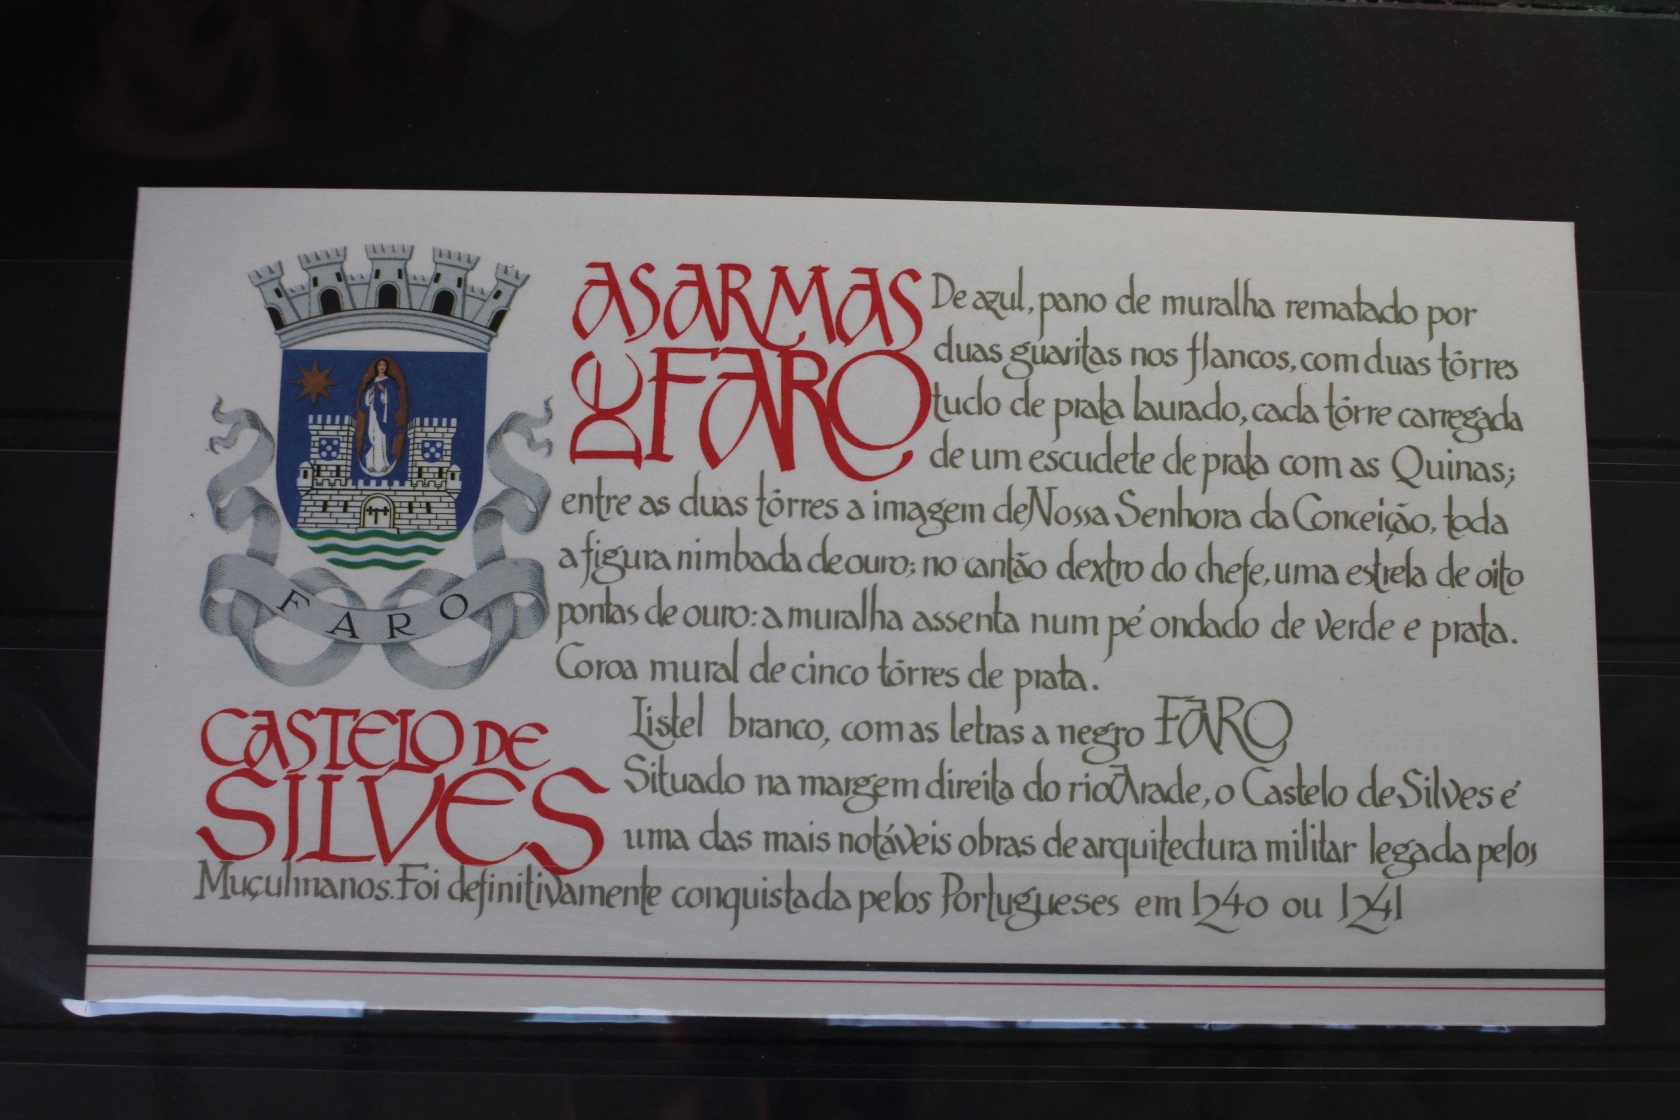 AS ARMAS
DE FARO
De azul, pano de muralha rematado por
duas guaritas nos flancos, com duas tôrres
tudo de prata laurado, cada tôrre carregada
de um escudete de prata com as Quinas;
entre as duas tôrres a imagem de Nossa Senhora da Conceição, toda
a figura nimbada de ouro; no cantão dextro do chefe, uma estrela de oito
pontas de ouro: a muralha assenta num pé ondado de verde e prata.
Coroa mural de cinco tôrres de prata.
Listel branco, com as letras a negro FARO
FARO
CASTELO DE
SILVES
Situado na margem direita do rio Arade, o Castelo de Silves é
uma das mais notáveis obras de arquitectura militar legada pelos
Muçulmanos. Foi definitivamente conquistada pelos Portugueses em 1240 ou 1241